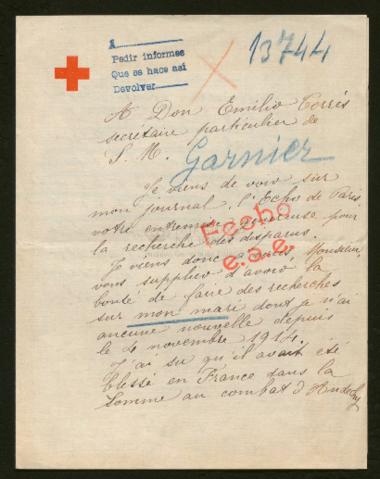 A
Pedir informes
Que se hace así
Devolver
13744
A Don Emilio Torrès
secrétaire particulier de
S. M.
Garnier
Je viens de voir sur
mon journal l'Echo de Paris
votre entremise précieuse pour
la recherche des disparus.
Fecho
e.a.e.
Je viens donc Monsieur,
vous supplier d'avoir la
bonté de faire des recherches
sur mon mari dont je n'ai
aucune nouvelle depuis
le 4 novembre 1914.
J'ai su qu'il avait été
blessé en France dans la
Somme au combat d'Andechy